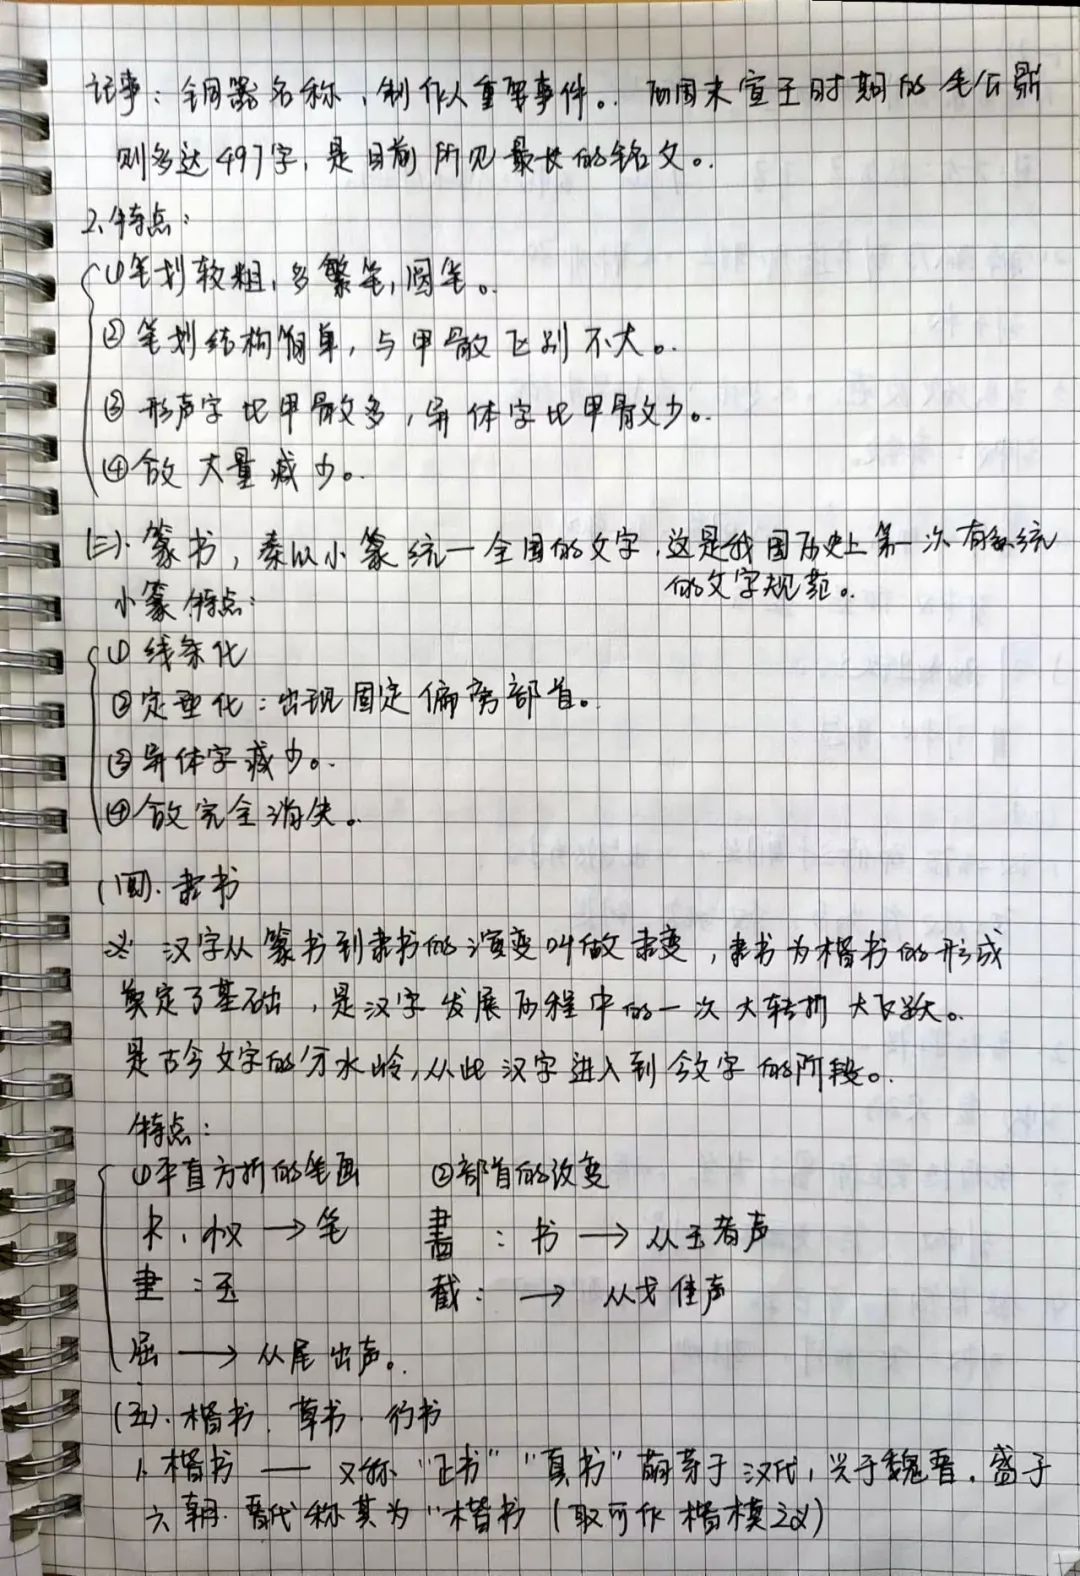 记事：铜器名称，制作人重要事件。西周末宣王时期的毛公鼎
则多达497字，是目前所见最长的铭文。
2、特点：
①笔划较粗，多繁笔，圆笔。
②笔划结构简单，与甲骨文区别不大。
③形声字比甲骨文多，异体字比甲骨文少。
④合文大量减少。
(三)、篆书，秦以小篆统一全国的文字，这是我国历史上第一次有系统
的文字规范。
小篆特点：
①线条化
②定型化：出现固定偏旁部首。
③异体字减少。
④合文完全消失。
(四)、隶书
※ 汉字从篆书到隶书的演变叫做隶变，隶书为楷书的形成
奠定了基础，是汉字发展历程中的一次大转折大飞跃。
是古今文字的分水岭，从此汉字进入到今文字的阶段。
特点：
①平直方折的笔画 ②部首的改变
→笔 書：书→从聿者声
聿：
截：→从戈隹声
屈→从尾出声。
(五)、楷书、草书、行书
1、楷书——又称“正书”“真书”萌芽于汉代，兴于魏晋，盛于
六朝 晋代称其为“楷书(取可作楷模之义)